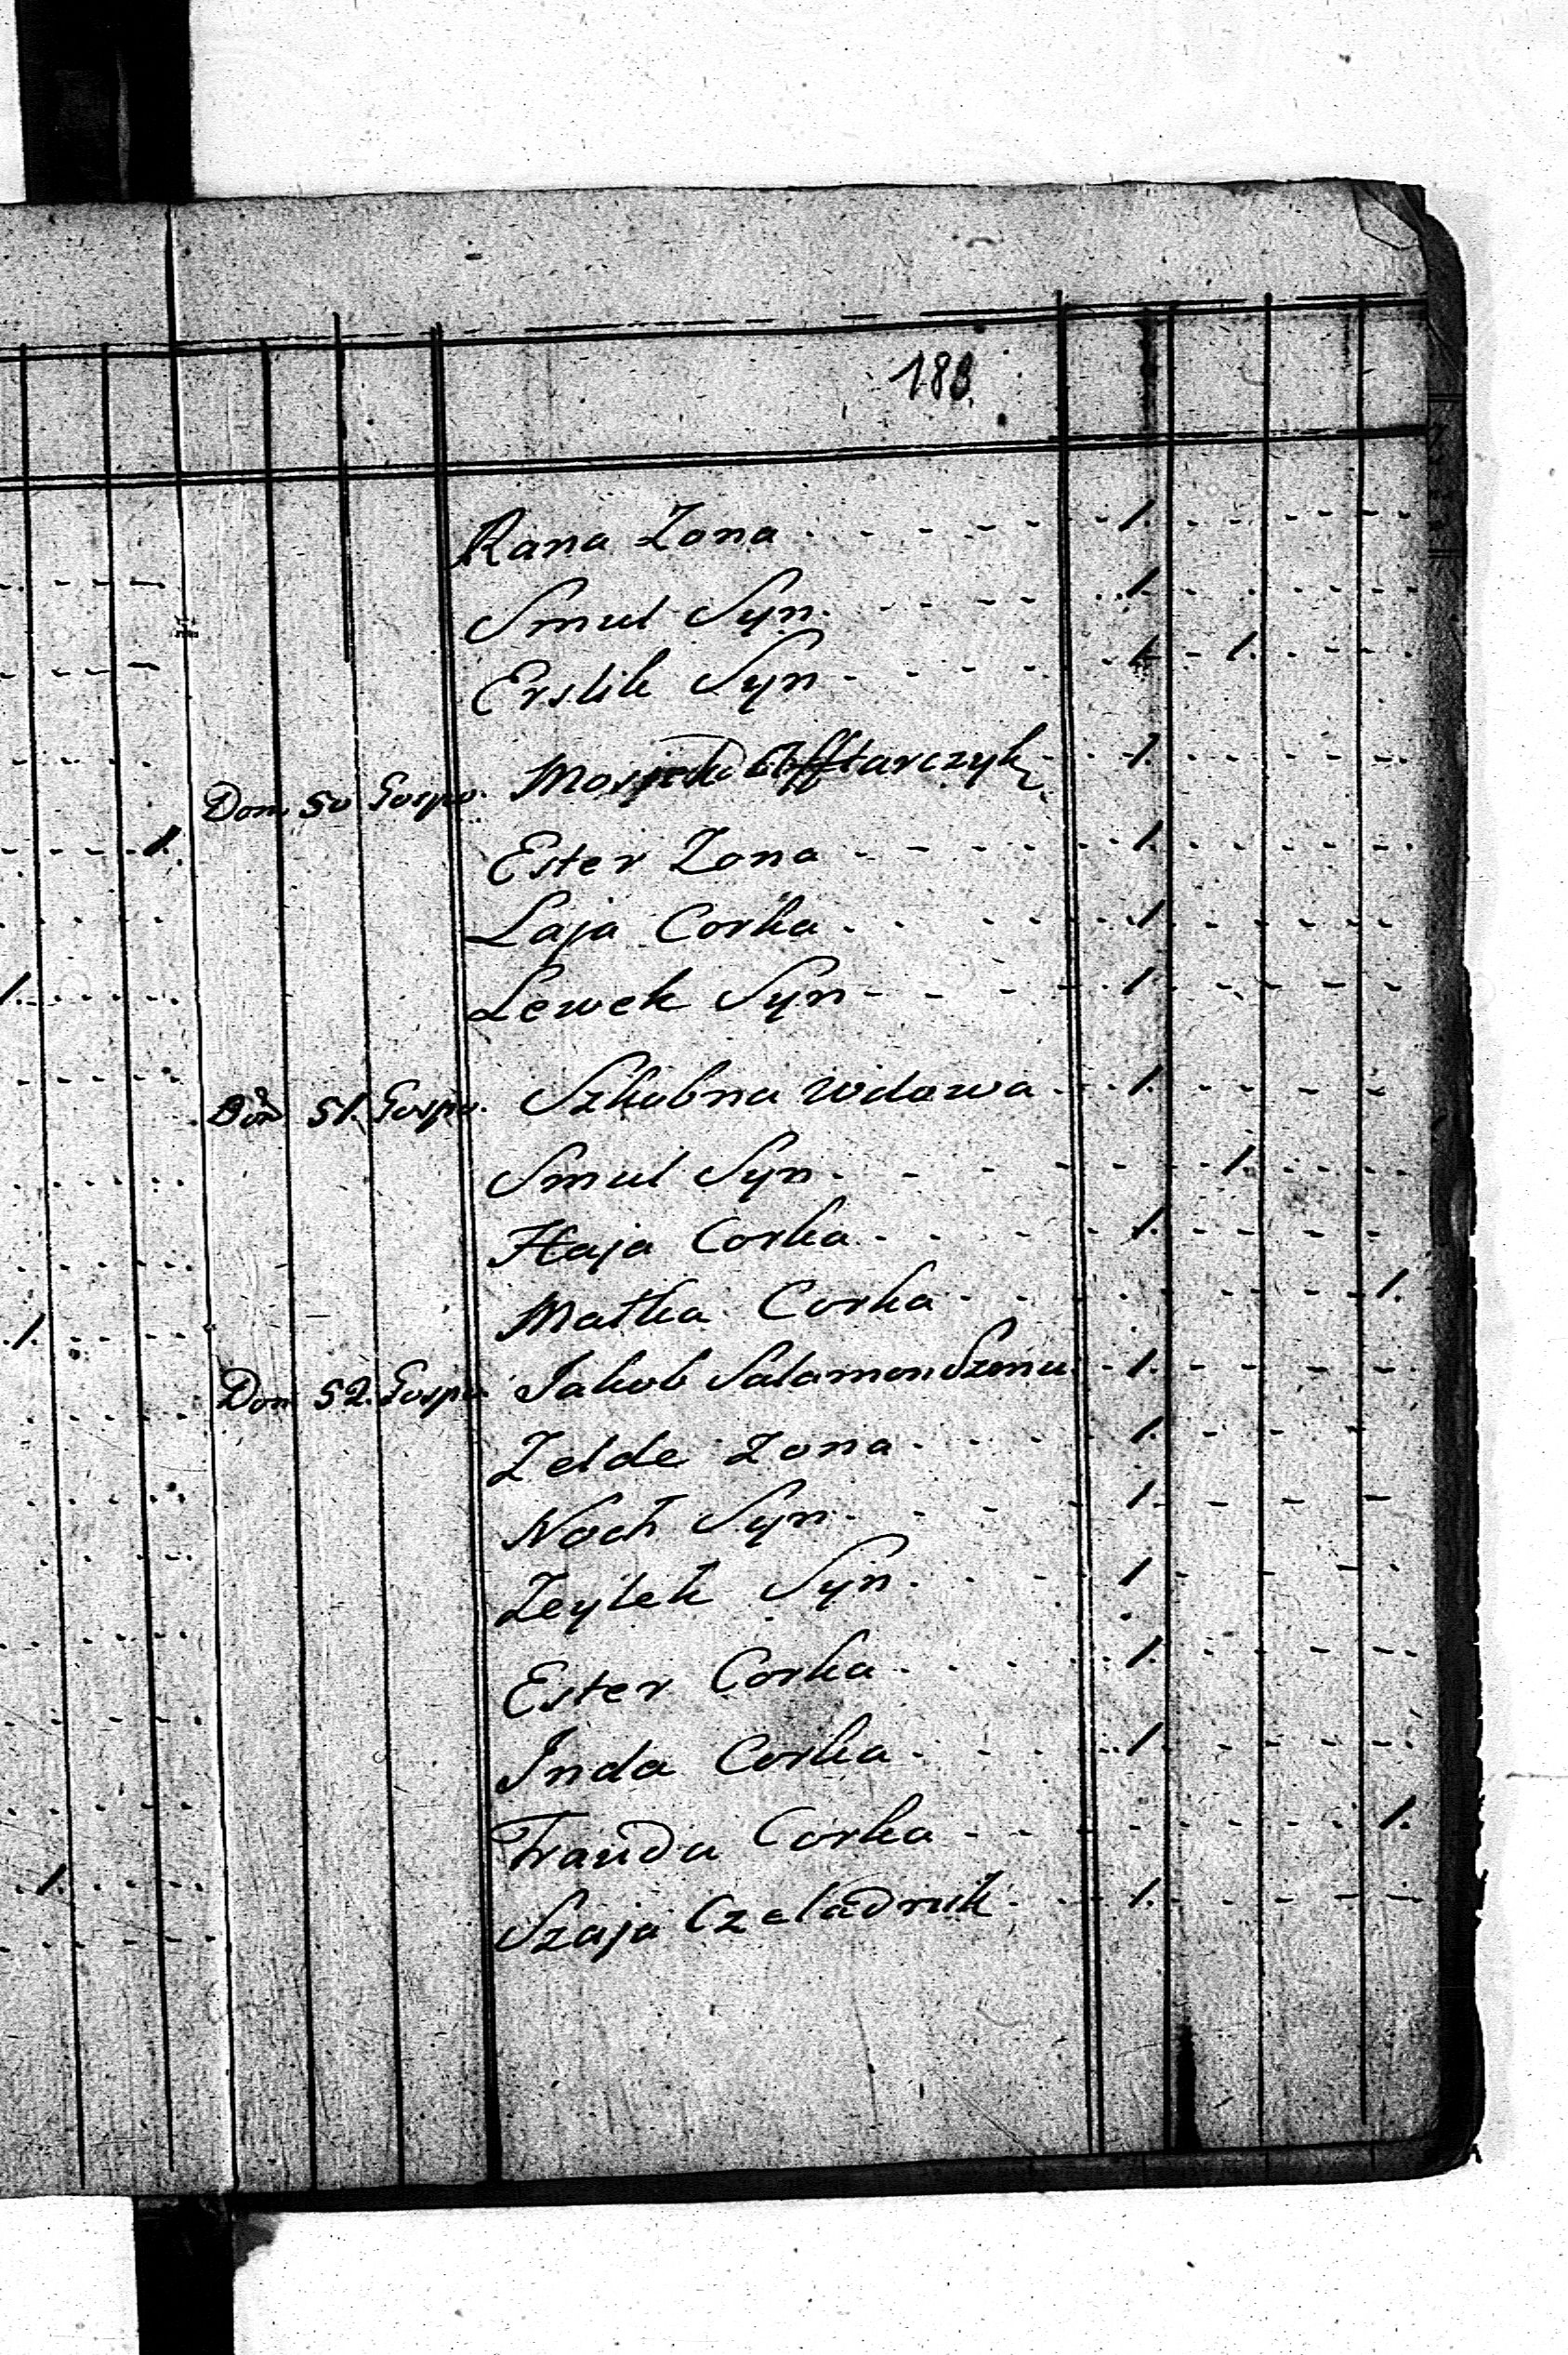 188.
Rana Zona - 1.
Smul Syn - 1
Erslik Syn - 1 - 1.
Dom 50 Gospo. Mosiek - 1.
Ester Zona - 1.
Laja Corka - 1
Lewek Syn - 1.
Dom 51. Gospo. Szkobna Wdowa - 1.
Smul Syn - 1.
Haja Corka - 1.
Matka Corka - 1.
Dom 52. Gospo. Jakob Salamon - 1.
Zelde Zona - 1.
Noch Syn - 1.
Zeylek Syn - 1
Ester Corka - 1.
Inda Corka - 1.
Frauda Corka - 1.
Szaja Czeladnik - 1.